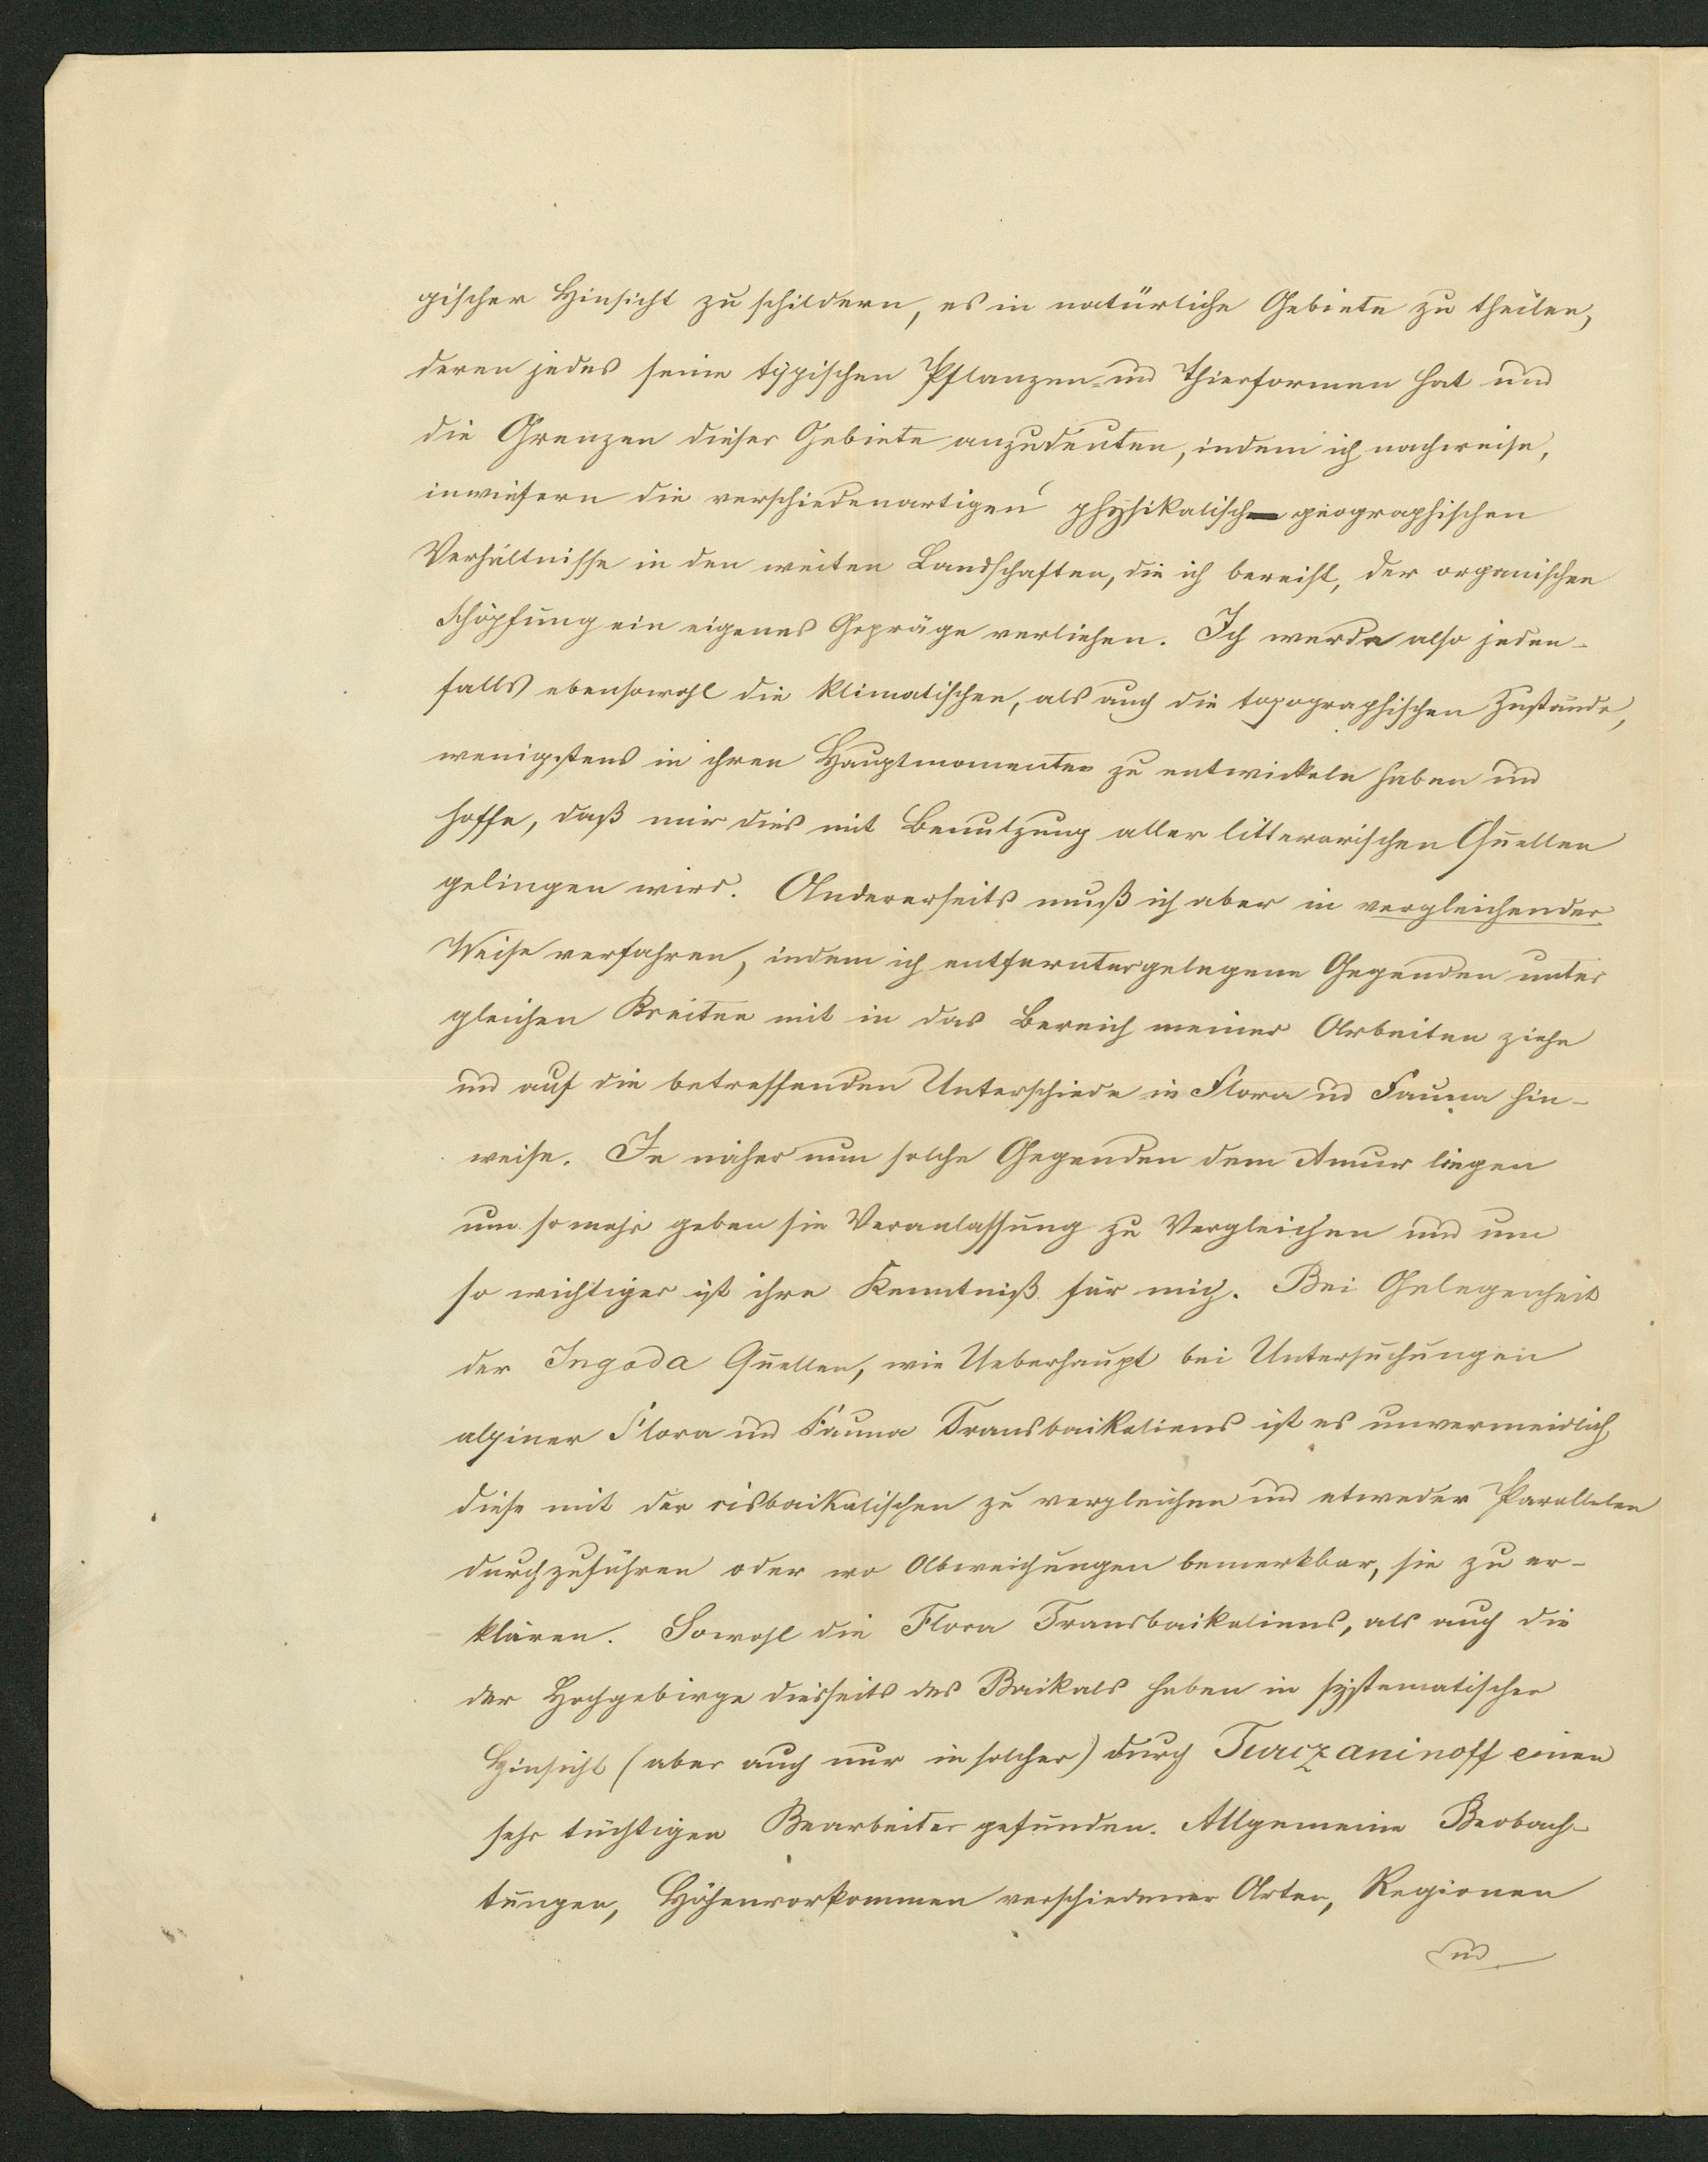 gischer Hinsicht zu schildern, es in natürliche Gebiete zu theilen,
deren jedes seine typischen Pflanzen- und Thierformen hat und
die Grenzen dieser Gebiete anzudeuten, indem ich nachweise,
inwiefern die verschiedenartigen physikalisch-geographischen
Verhältnisse in den weiten Landschaften, die ich bereist, der organischen
Schöpfung ein eigenes Gepräge verliehen. Ich werde also jeden-
falls ebensowohl die klimatischen, als auch die topographischen Zustände,
wenigstens in ihren Hauptmomenten zu entwickeln haben und
hoffe, daß mir dies mit Benutzung aller litterarischen Quellen
gelingen wird. Andererseits muß ich aber in vergleichender
Weise verfahren, indem ich entferntergelegene Gegenden unter
gleichen Breiten mit in das Bereich meiner Arbeiten ziehe
und auf die betreffenden Unterschiede in Flora und Fauna hin-
weise. Je näher nun solche Gegenden dem Amur liegen
um so mehr geben sie Veranlassung zu Vergleichen und um
so wichtiger ist ihre Kenntniß für mich. Bei Gelegenheit
der Ingoda Quellen, wie Ueberhaupt bei Untersuchungen
alpiner Flora und Fauna Transbaikaliens ist es unvermeidlich
diese mit der cisbaikalischen zu vergleichen und etweder Parallelen
durchzuführen oder wo Abweichungen bemerkbar, sie zu er-
klären. Sowohl die Flora Transbaikaliens, als auch die
der Hochgebirge diesseits des Baikals haben in systematischer
Hinsicht (aber auch nur in solcher) durch Turczaninoff einen
sehr tüchtigen Bearbeiter gefunden. Allgemeine Beobach-
tungen, Höhenvorkommen verschiedener Arten, Regionen
und